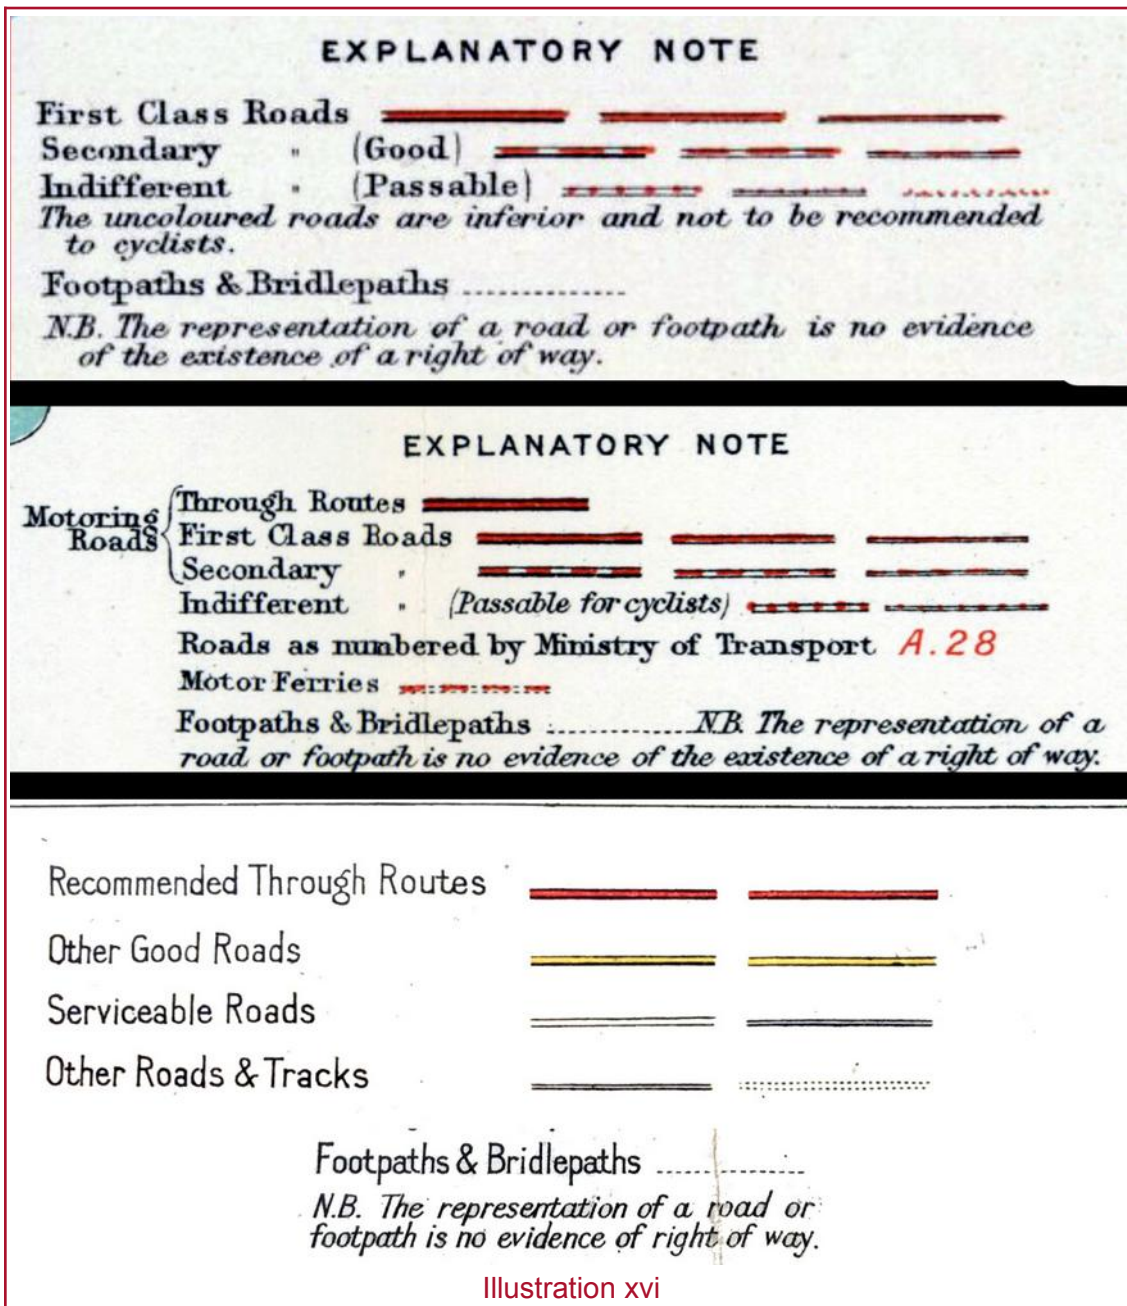 EXPLANATORY NOTE
First Class Roads
Secondary " (Good)
Indifferent " (Passable)
The uncoloured roads are inferior and not to be recommended
to cyclists.
Footpaths & Bridlepaths ..............
N.B. The representation of a road or footpath is no evidence
of the existence of a right of way.
EXPLANATORY NOTE
Motoring Roads
Through Routes
First Class Roads
Secondary "
Indifferent " (Passable for cyclists)
Roads as numbered by Ministry of Transport A.28
Motor Ferries
Footpaths & Bridlepaths ............. N.B. The representation of a
road or footpath is no evidence of the existence of a right of way.
Recommended Through Routes
Other Good Roads
Serviceable Roads
Other Roads & Tracks
Footpaths & Bridlepaths ..............
N.B. The representation of a road or
footpath is no evidence of right of way.
Illustration xvi